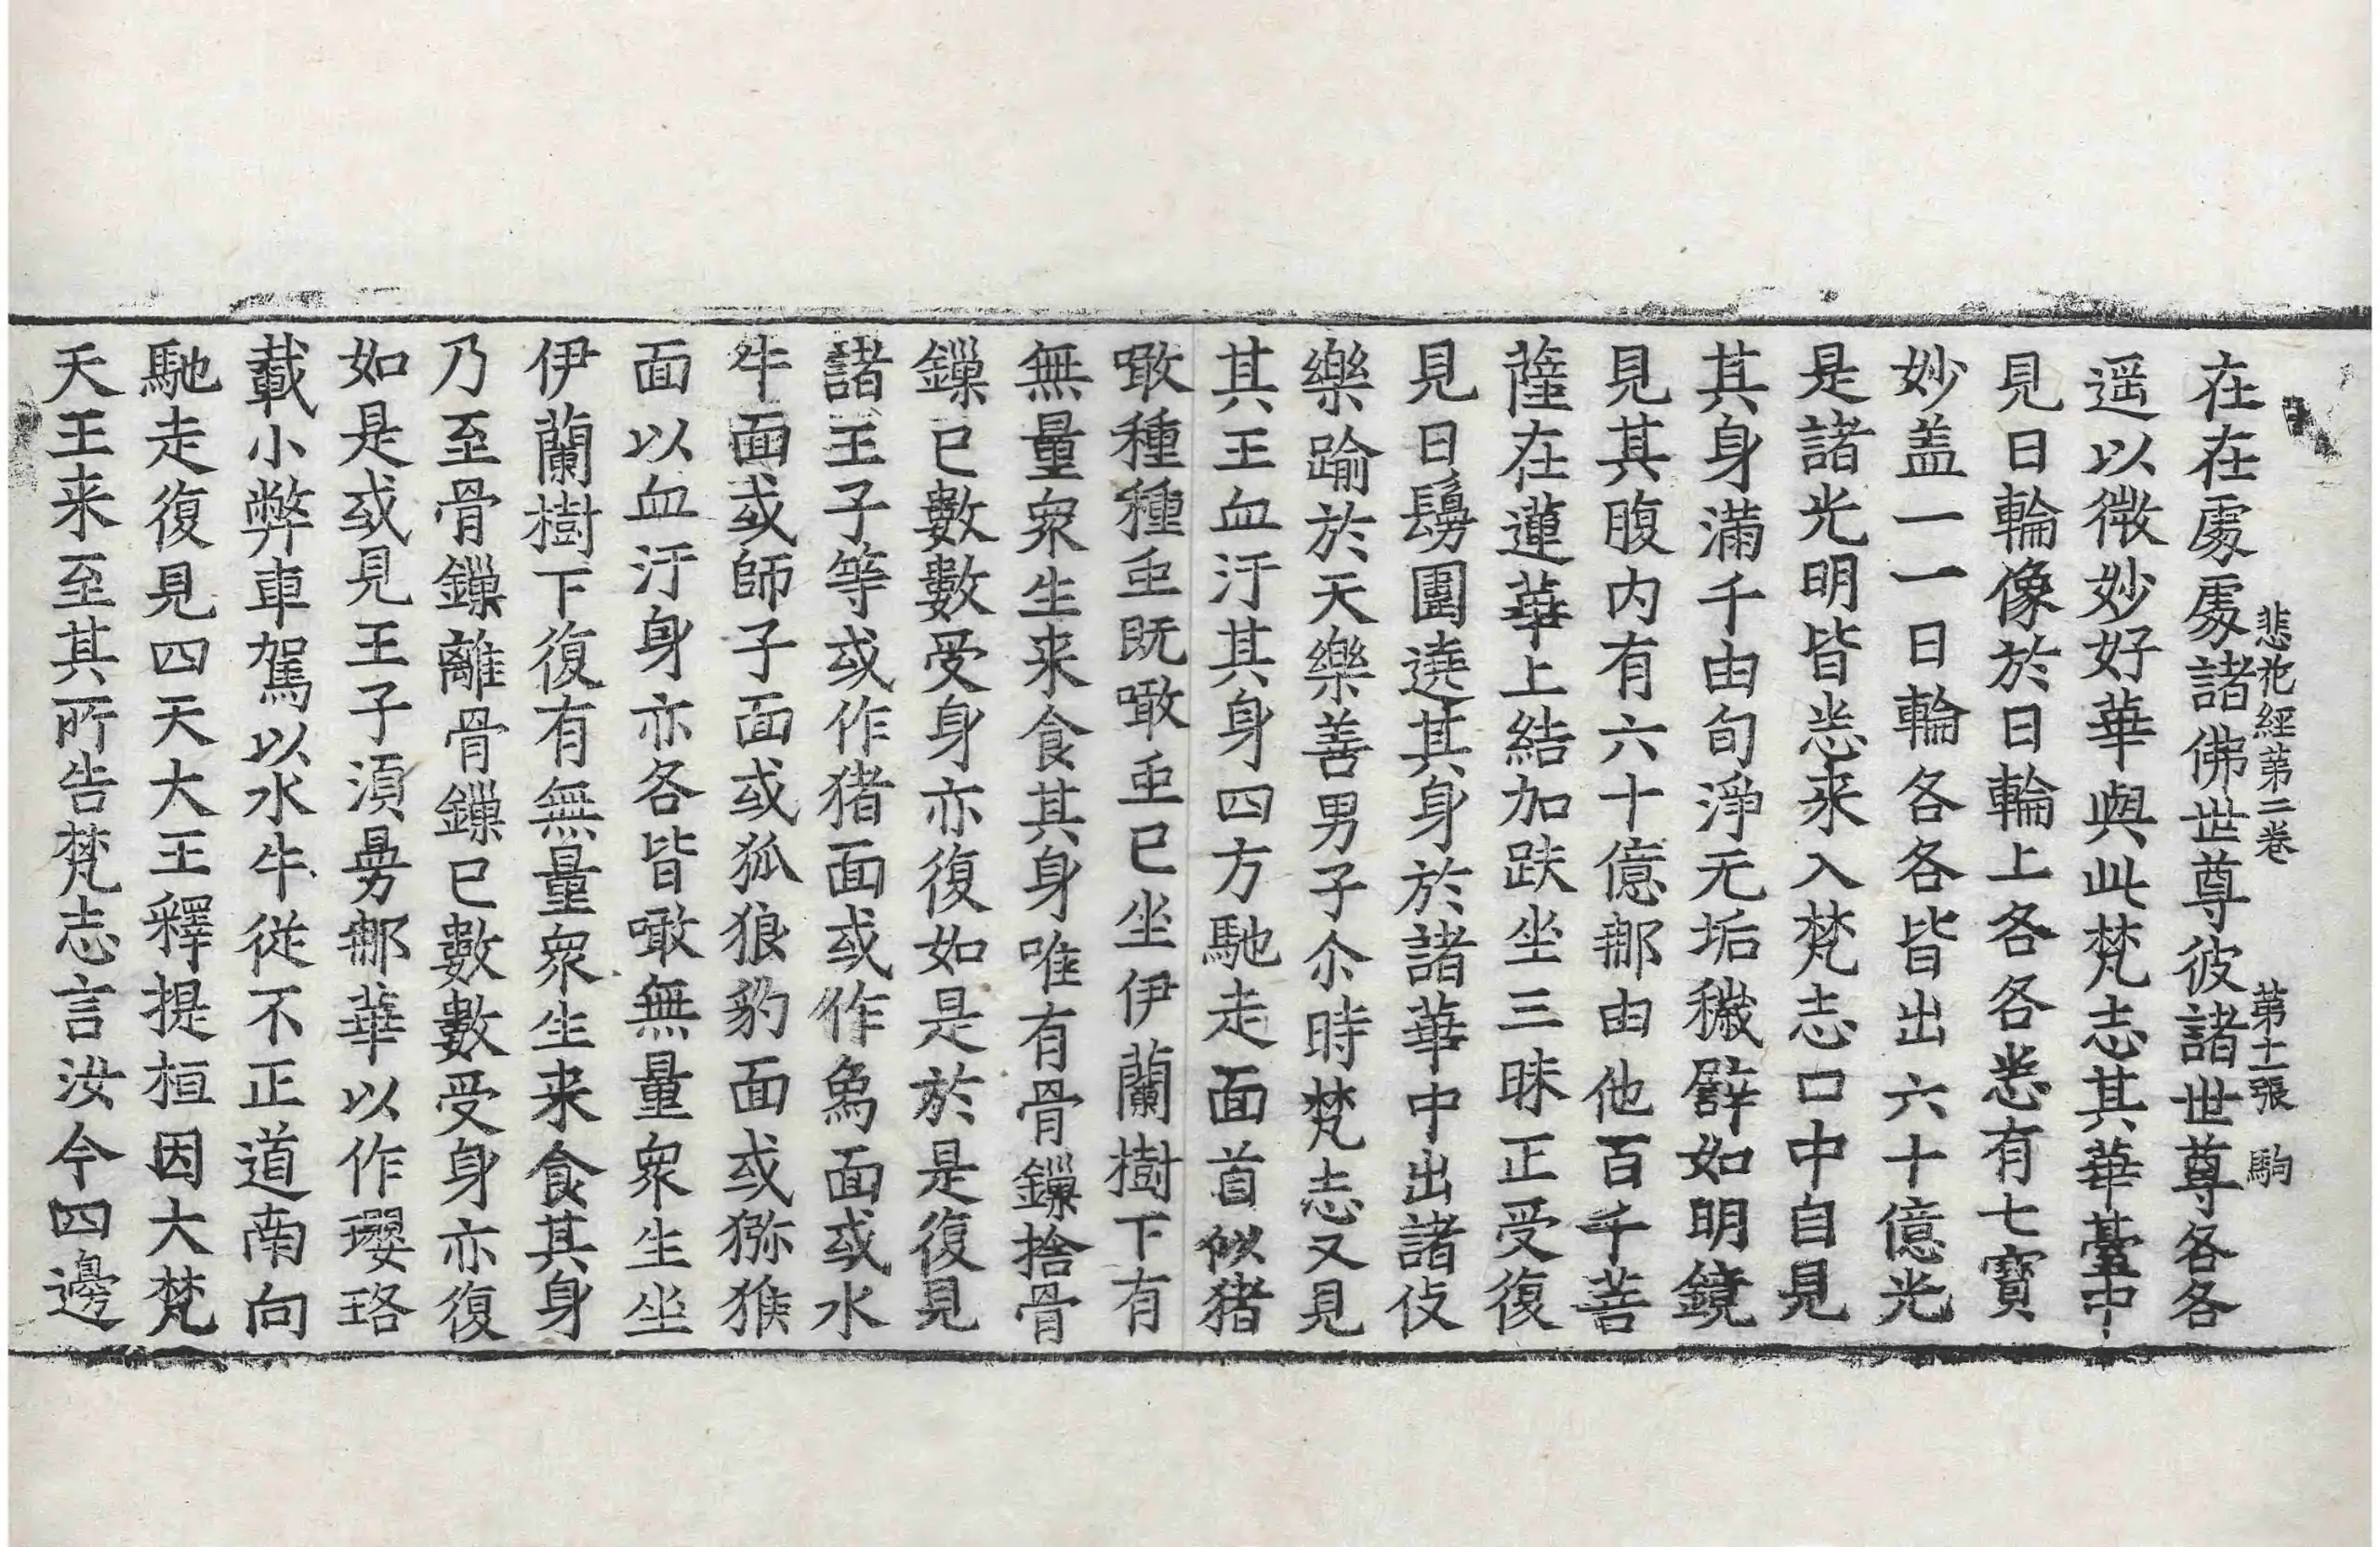 悲花經第二卷　第十一張　駒
在在處處諸佛世尊彼諸世尊各各
遥以微妙好華與此梵志其華臺中
見日輪像於日輪上各各悉有七寶
妙盖一一日輪各各皆出六十億光
是諸光明皆悉来入梵志口中自見
其身滿千由旬淨无垢穢譬如明鏡
見其腹内有六十億那由他百千菩
薩在蓮華上結加趺坐三昧正受復
見日鬘圍遶其身於諸華中出諸伎
樂踰於天樂善男子尒時梵志又見
其王血汙其身四方馳走面首似猪
噉種種䖝既噉䖝已坐伊蘭樹下有
無量衆生来食其身唯有骨鏁捨骨
鏁已數數受身亦復如是於是復見
諸王子等或作猪面或作象面或水
牛面或師子面或狐狼豹面或猕猴
面以血汙身亦各皆噉無量衆生坐
伊蘭樹下復有無量衆生来食其身
乃至骨鏁離骨鏁已數數受身亦復
如是或見王子湏曼那華以作瓔珞
載小弊車駕以水牛從不正道南向
馳走復見四天大王釋提桓因大梵
天王来至其所告梵志言汝今四邊